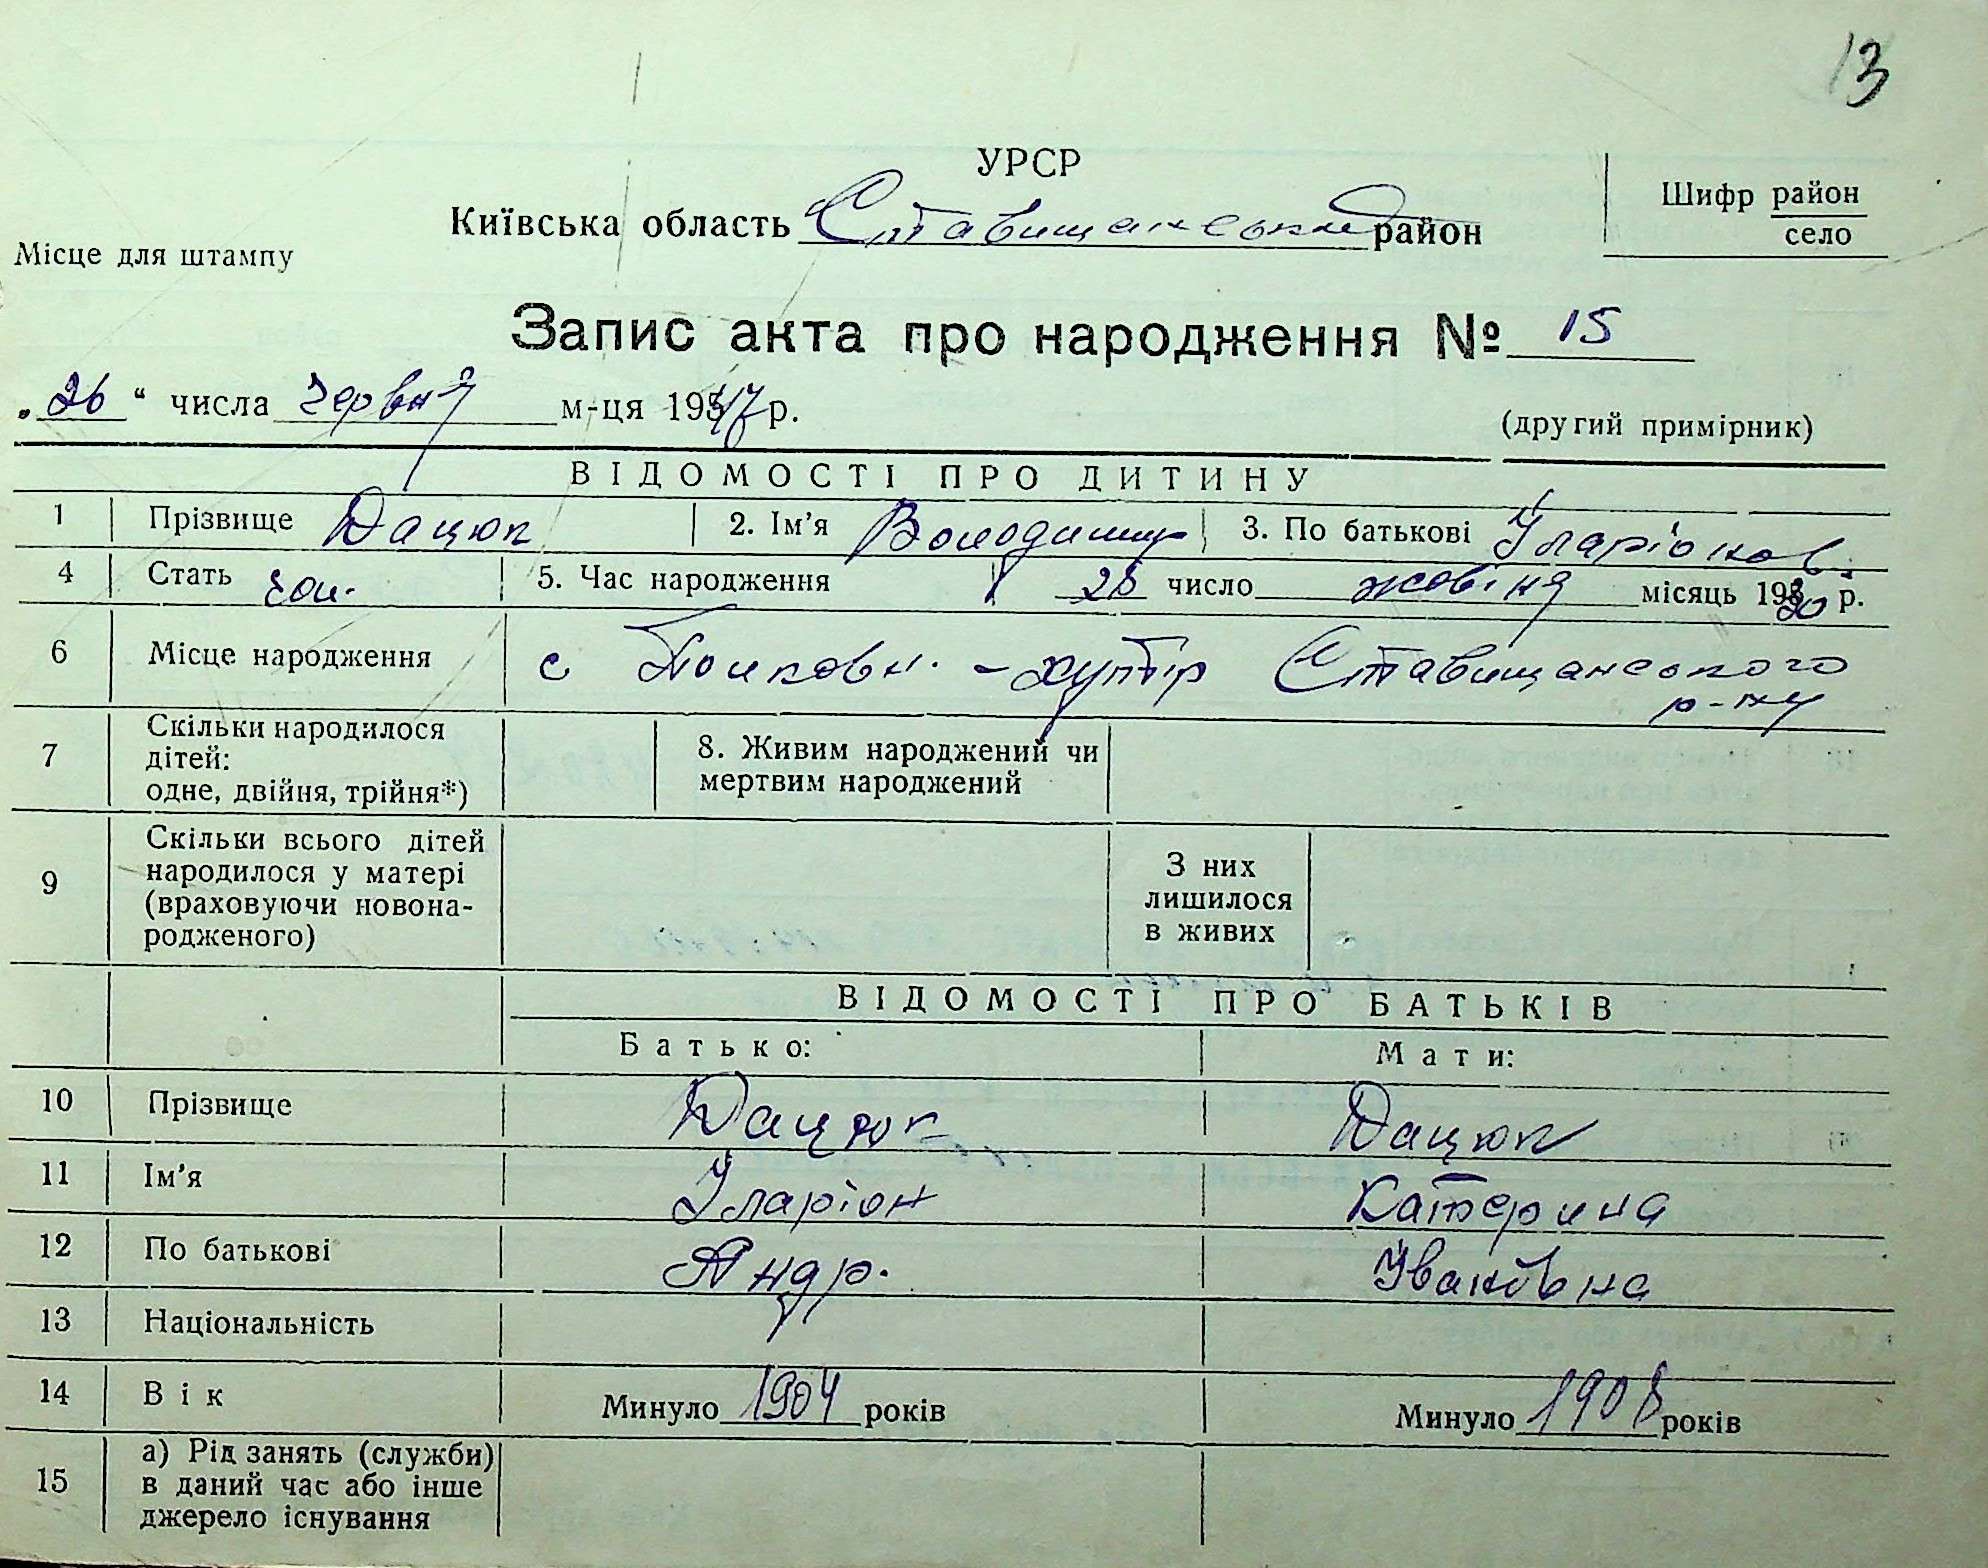 13
УРСР
Київська область Ставищанський район
Шифр район
село
Місце для штампу
Запис акта про народження № 15
„26“ числа червня м-ця 1947 р.
(другий примірник)
ВІДОМОСТІ ПРО ДИТИНУ
1 Прізвище Дацюк 2. Ім'я Володимир 3. По батькові Іларіонов.
4 Стать чол. 5. Час народження 28 число жовтня місяць 1930 р.
6 Місце народження с. Полковн. - хутір Ставищанського
р-ну
7 Скільки народилося
дітей:
одне, двійня, трійня*)
8. Живим народжений чи
мертвим народжений
9 Скільки всього дітей
народилося у матері
(враховуючи новона-
родженого)
З них
лишилося
в живих
ВІДОМОСТІ ПРО БАТЬКІВ
Батько: Мати:
10 Прізвище Дацюк Дацюк
11 Ім'я Іларіон Катерина
12 По батькові Андр. Іванівна
13 Національність
14 Вік Минуло 1904 років Минуло 1908 років
15 а) Рід занять (служби)
в даний час або інше
джерело існування